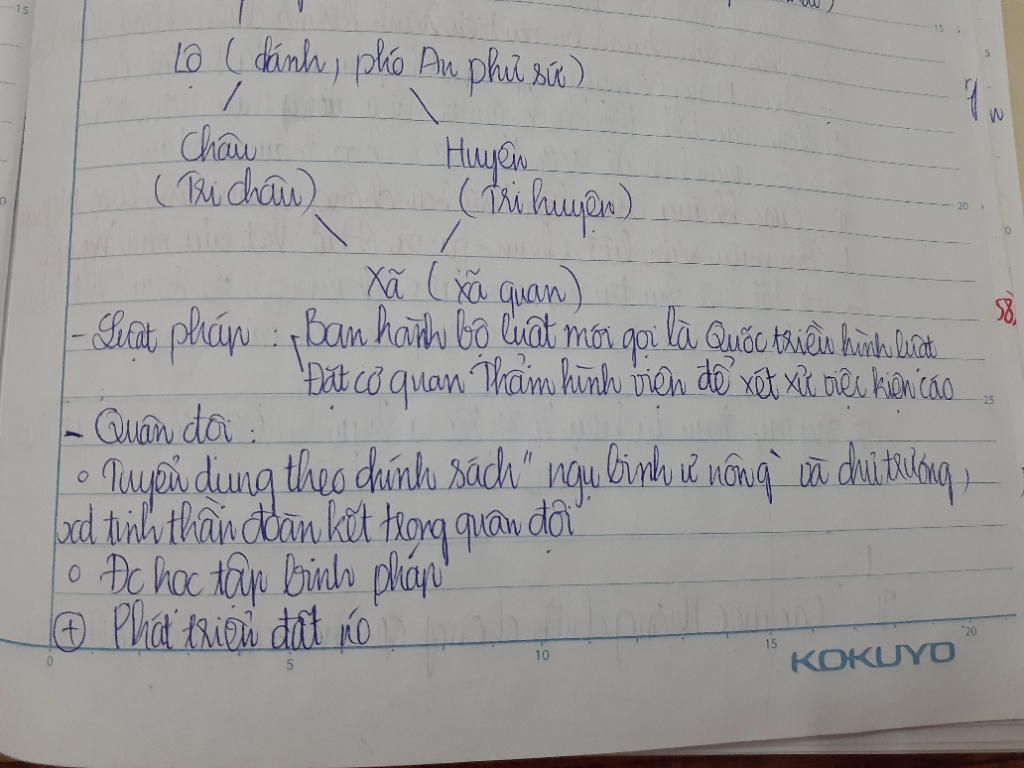 Lộ (chánh, phó An phủ sứ)
Châu Huyện
(Tri châu) (Tri huyện)
Xã (xã quan)
- Luật pháp: - Ban hành bộ luật mới gọi là Quốc triều hình luật
Đặt cơ quan Thẩm hình viện để xét xử việc kiện cáo
- Quân đội:
o Tuyển dụng theo chính sách "ngụ binh ư nông" và chủ trương,
xd tinh thần đoàn kết trong quân đội
o Đc học tập binh pháp
+ Phát triển đất nc
15
20
25
58
0 5 10 15 20
KOKUYO